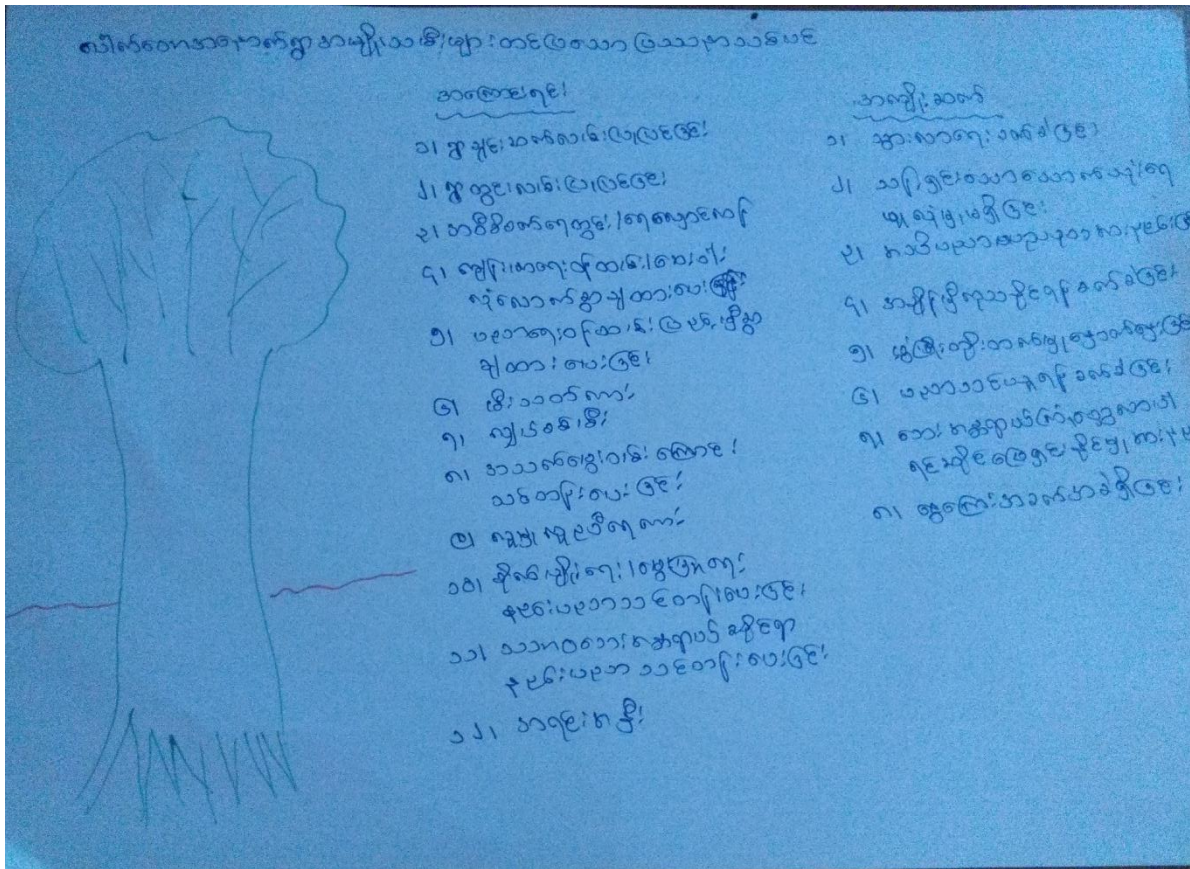 ပေါက်တောအနောက်ရွာ အမျိုးသမီးများ တင်ပြသော ပြဿနာသစ်ပင်
အကြောင်းရင်း
၁။ ရွာချင်းဆက်လမ်းပြုပြင်ခြင်း
၂။ ရွာတွင်းလမ်းပြုပြင်ခြင်း
၃။ အဝီစိတွင်း/ရေလှောင်ကန်
၄။ ကျန်းမာရေးဝန်ထမ်း/ဆေးဝါး
လုံလောက်စွာချထားပေးခြင်း
၅။ ပညာရေးဝန်ထမ်း ပြည့်မှီစွာ
ချထားပေးခြင်း
၆။ မီးသတ်ကား
၇။ လျှပ်စစ်မီး
၈။ အသက်မွေးဝမ်းကြောင်း
သင်တန်းပေးခြင်း
၉။
၁၀။ စိုက်ပျိုးရေး/မွေးမြူရေး
နည်းပညာသင်တန်းပေးခြင်း
၁၁။ သဘာဝဘေးအန္တရာယ်ဆိုင်ရာ
နည်းပညာ သင်တန်းပေးခြင်း
၁၂။ အရင်းအနှီး
အကျိုးဆက်
၁။ သွားလာရေး ခက်ခဲခြင်း
၂။ သန့်ရှင်းသော သောက်သုံးရေ
၃။
၄။ အချိန်မှီကုသနိုင်ရန် ခက်ခဲခြင်း
၅။
၆။ ပညာသင်ယူရန် ခက်ခဲခြင်း
၇။ ဘေးအန္တရာယ်ကြုံတွေ့လာပါ
၈။ ငွေကြေးအခက်အခဲရှိခြင်း